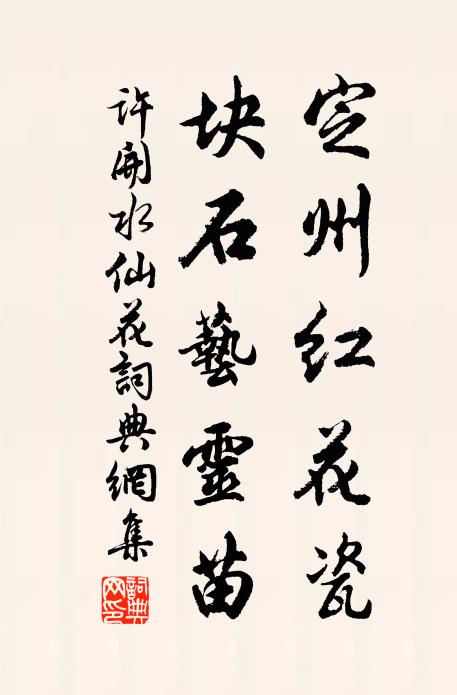 定州红花瓷
块石藝靈苗
许開水仙花詞典網集
詞典網印